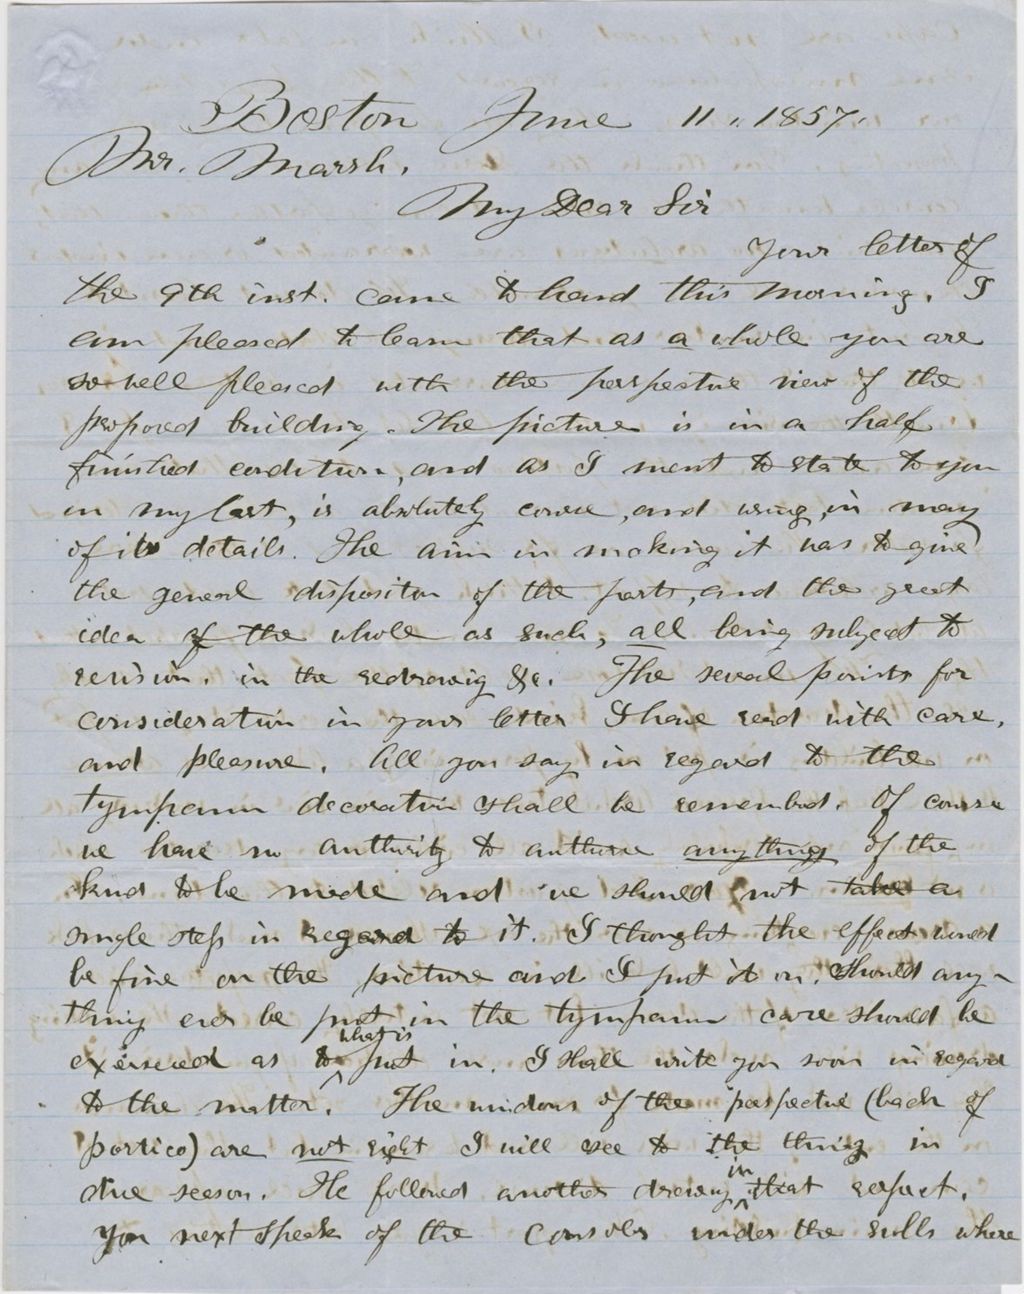 Boston June 11. 1857.
Mr. Marsh.
My Dear Sir
Your letter of
the 9th inst. came to hand this morning. I
am pleased to learn that as a whole you are
so well pleased with the perspective view of the
proposed building. The picture is in a half
finished condition, and as I ment to state to you
in my last, is absolutely coarse, and wrong, in many
of its details. The aim in making it was to give
the general disposition of the parts, and the great
idea of the whole as such, all being subject to
revision, in the redrawing &c. The several points for
consideration in your letter I have read with care,
and pleasure. All you say in regard to the
tympanum decoration shall be remembered. Of course
we have no authority to authorize anything of the
kind to be made and we should not take a
single step in regard to it. I thought the effect would
be fine on the picture and I put it on. Should any-
thing ever be put in the tympanum care should be
exercised as to what is put in. I shall write you soon in regard
to the matter. The windows of the perspective (back of
portico) are not right I will see to the thing in
due season. He followed another drawing in that respect.
You next speak of the Consoles under the sills where